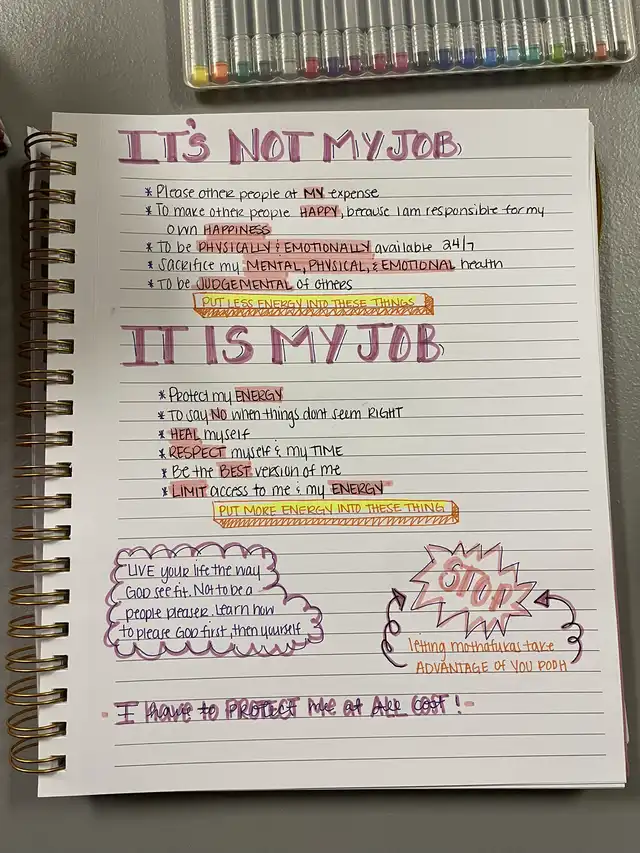 IT'S NOT MY JOB
* Please other people at MY expense
* To make other people HAPPY, because I am responsible for my
own HAPPINESS
* To be PHYSICALLY & EMOTIONALLY available 24/7
* Sacrifice my MENTAL, PHYSICAL, & EMOTIONAL health
* To be JUDGEMENTAL of others
PUT LESS ENERGY INTO THESE THINGS
IT IS MY JOB
* Protect my ENERGY
* To say NO when things dont seem RIGHT
* HEAL myself
* RESPECT myself & my TIME
* Be the BEST version of me
* LIMIT access to me & my ENERGY
PUT MORE ENERGY INTO THESE THING
LIVE your life the way
GOD see fit. Not to be a
people pleaser. Learn how
to please GOD first, then yourself
STOP
letting mothafukas take
ADVANTAGE OF YOU POOH
- I have to PROTECT me at ALL COST! -